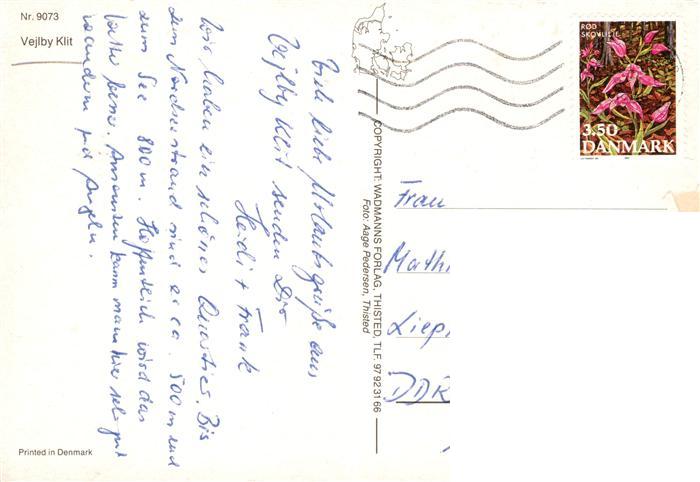 Nr. 9073
Vejlby Klit
Viele liebe Urlaubsgrüße aus
Vejlby Klit senden Dir
Heidi + Frank
Wir haben ein schönes Quartier. Bis
zum Nordseestrand sind es ca. 500 m und
zum See 800 m. Hoffentlich wird das
Wetter besser. Ansonsten kann man hier sehr gut
wandern und Angeln.
Printed in Denmark
COPYRIGHT: WADMANNS FORLAG, THISTED, TLF. 97 92 31 66
Foto: Aage Pedersen, Thisted
RØD
SKOVLILJE
3.50
DANMARK
Frau
Math
Liep
DDR